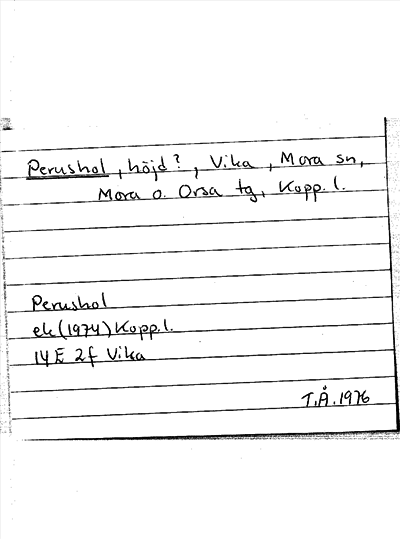 Perushol, höjd?, Vika, Mora sn,
Mora o. Orsa tg, Kopp. l.
Perushol
ek (1974) Kopp. l.
14E 2f Vika
T.Å. 1976